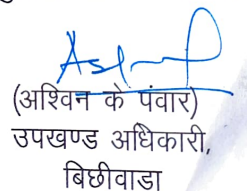 (अश्विन के पंवार)
उपखण्ड अधिकारी,
बिछीवाडा